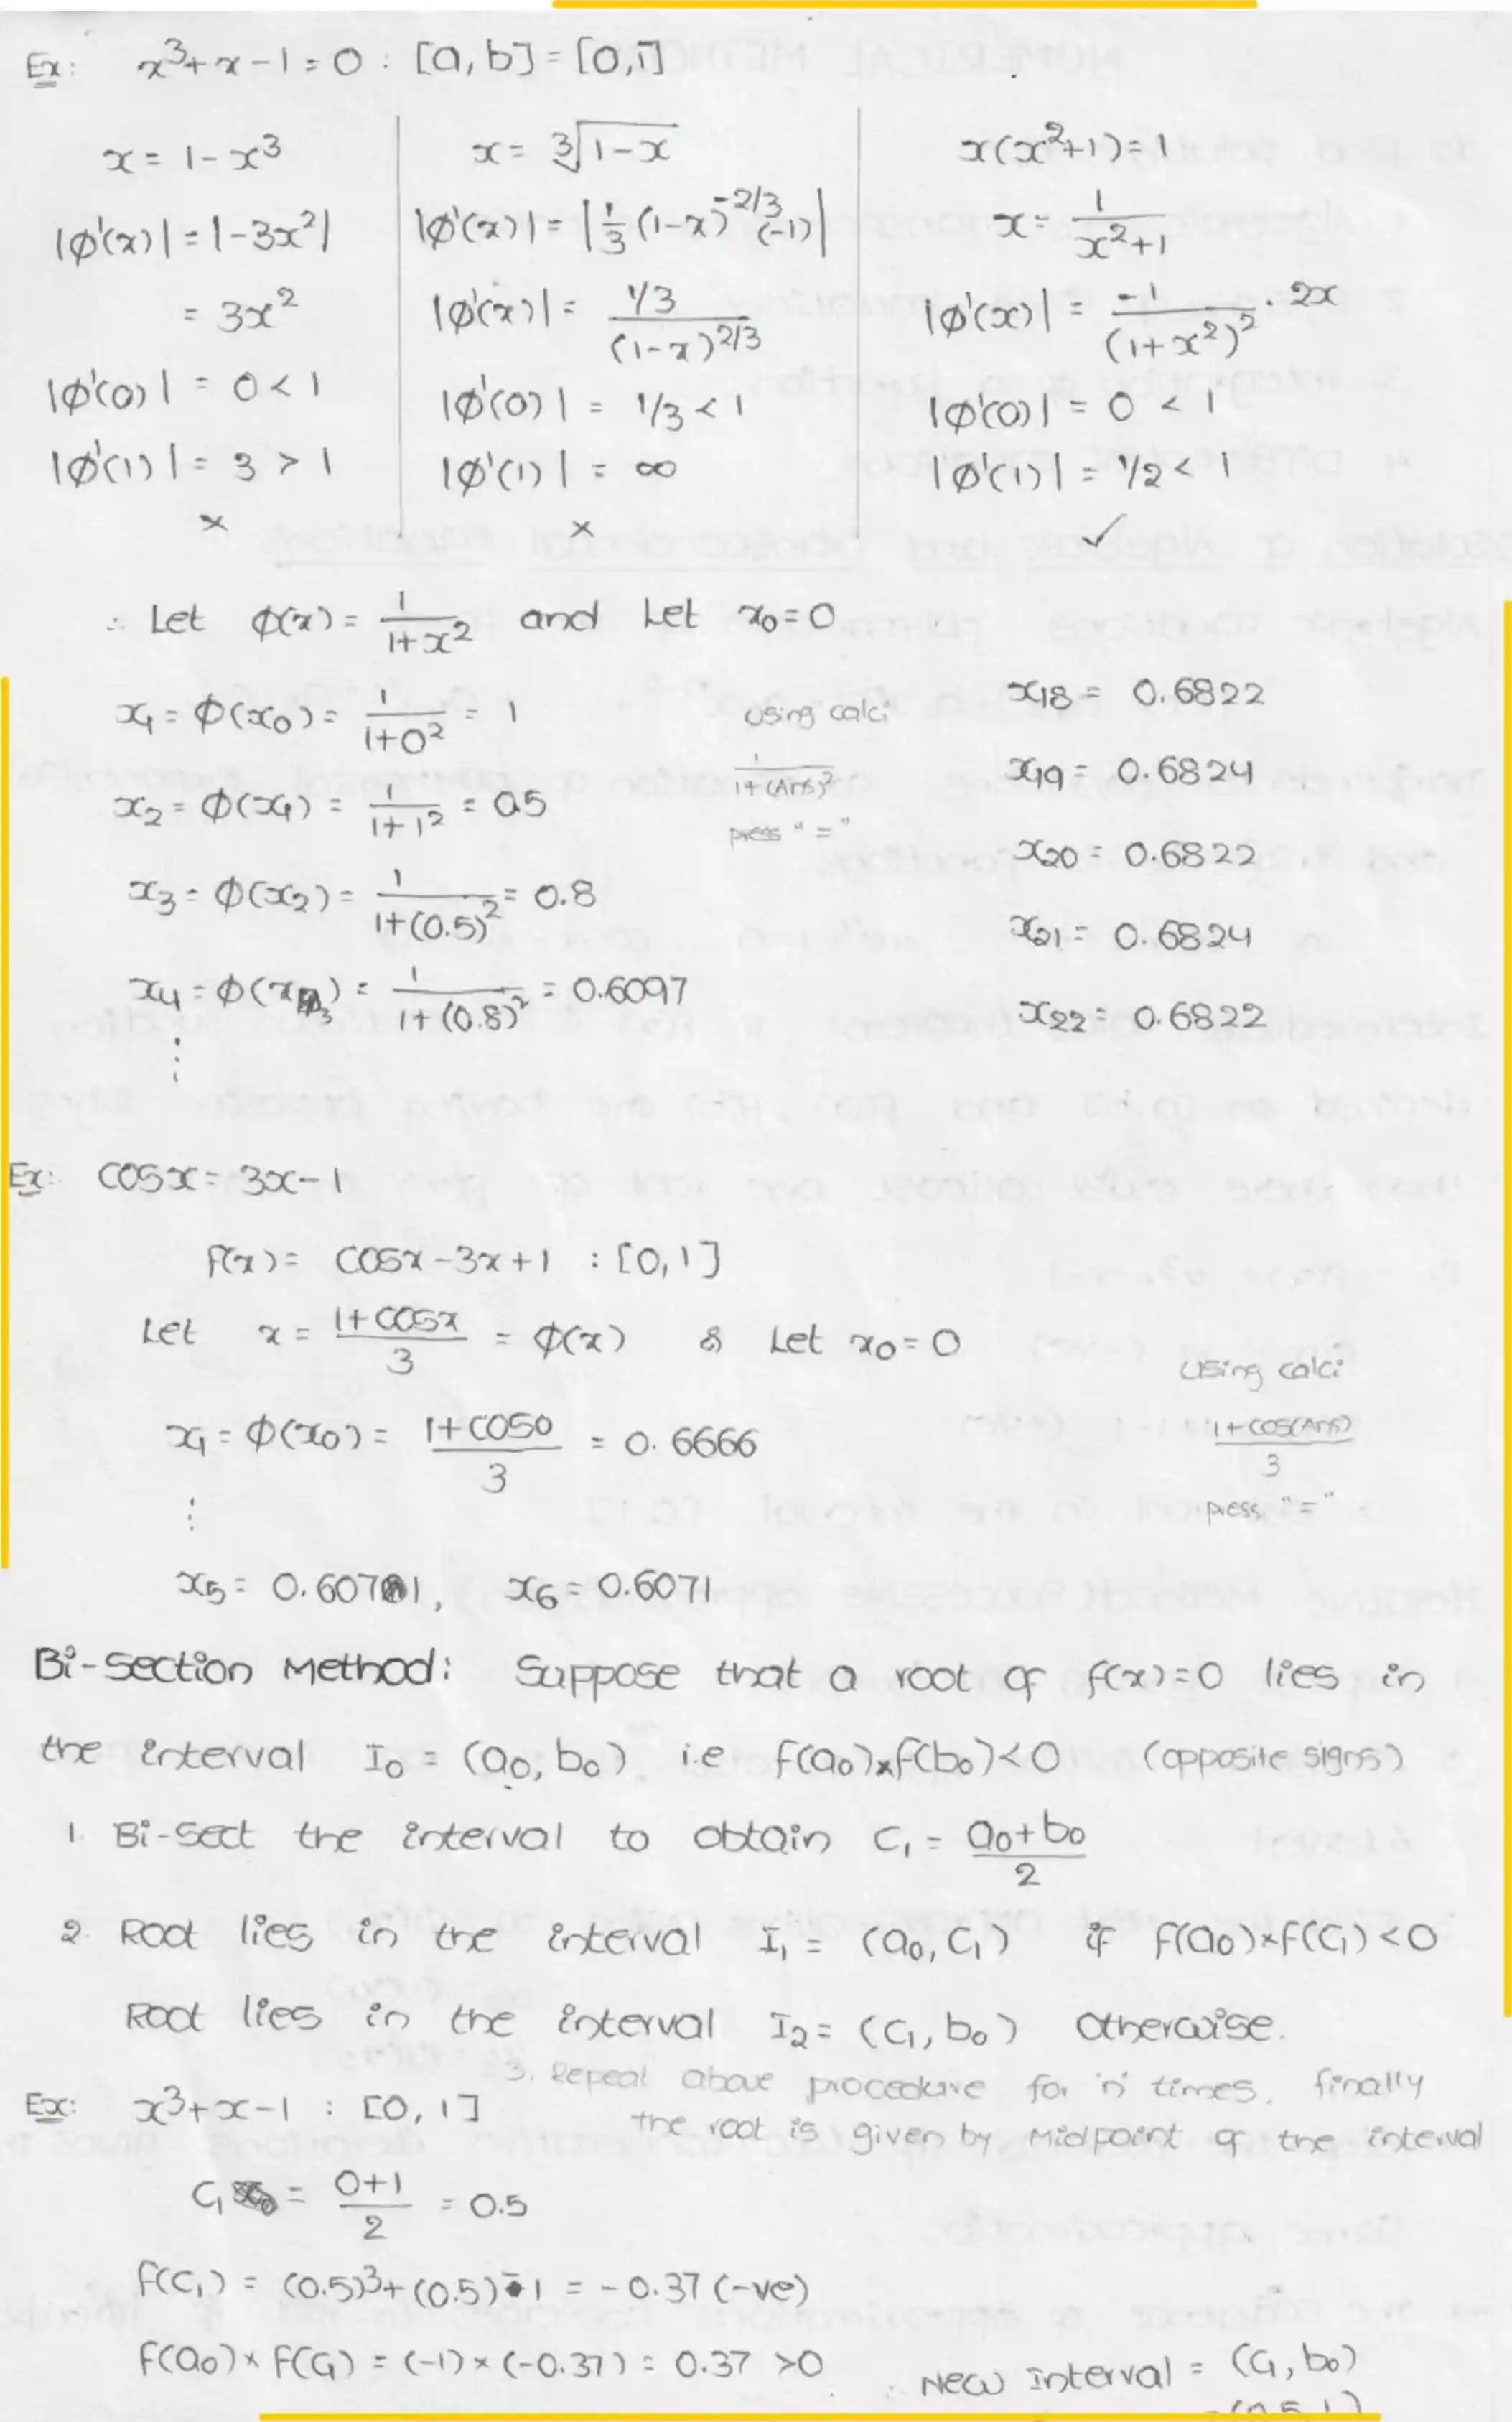 Ex: x³+x-1=0 : [a,b]=[0,1]
x = 1-x³
|φ'(x)| = |-3x²|
= 3x²
|φ'(0)| = 0 < 1
|φ'(1)| = 3 > 1
×
x = ∛(1-x)
|φ'(x)| = |1/3 (1-x)^(-2/3) (-1)|
|φ'(x)| = (1/3)/(1-x)^(2/3)
|φ'(0)| = 1/3 < 1
|φ'(1)| = ∞
×
x(x²+1) = 1
x = 1/(x²+1)
|φ'(x)| = -1/(1+x²)² . 2x
|φ'(0)| = 0 < 1
|φ'(1)| = 1/2 < 1
✓
∴ Let φ(x) = 1/(1+x²) and Let x₀=0
x₁ = φ(x₀) = 1/(1+0²) = 1
x₂ = φ(x₁) = 1/(1+1²) = 0.5
x₃ = φ(x₂) = 1/(1+(0.5)²) = 0.8
x₄ = φ(x₃) = 1/(1+(0.8)²) = 0.6097
⋮
using calci
1/(1+(Ans)²)
press "="
x₁₈ = 0.6822
x₁₉ = 0.6824
x₂₀ = 0.6822
x₂₁ = 0.6824
x₂₂ = 0.6822
Ex: cosx = 3x-1
f(x) = cosx-3x+1 : [0,1]
Let x = (1+cosx)/3 = φ(x) & Let x₀=0
x₁ = φ(x₀) = (1+cos0)/3 = 0.6666
⋮
using calci
(1+cos(Ans))/3
press "="
x₅ = 0.6071, x₆ = 0.6071
Bi-section Method: Suppose that a root of f(x)=0 lies in
the interval I₀ = (a₀, b₀) i.e f(a₀)×f(b₀)<0 (opposite signs)
1. Bi-sect the interval to obtain c₁ = (a₀+b₀)/2
2. Root lies in the interval I₁ = (a₀, c₁) if f(a₀)×f(c₁)<0
Root lies in the interval I₂ = (c₁, b₀) Otherwise.
3. Repeat above procedure for 'n' times. finally
the root is given by Midpoint of the interval
Ex: x³+x-1 : [0,1]
c₁ = (0+1)/2 = 0.5
f(c₁) = (0.5)³+(0.5)-1 = -0.37 (-ve)
f(a₀)×f(c₁) = (-1)×(-0.37) = 0.37 >0
∴ New Interval = (c₁, b₀)
= (0.5, 1)